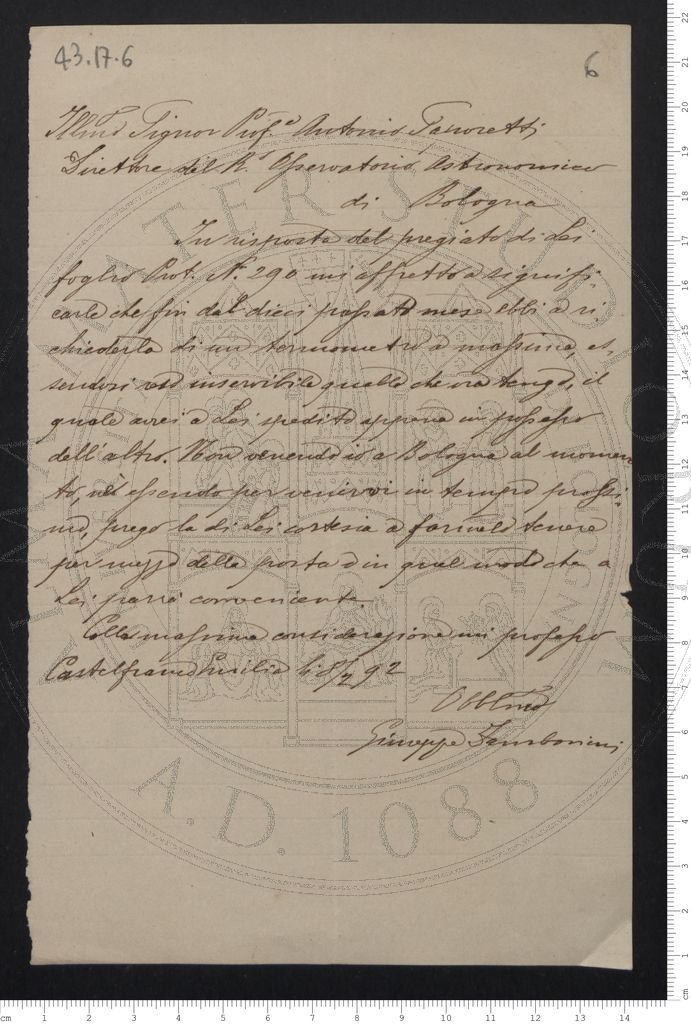 43.17.6
6
Illmo Signor Prof.e Antonio Saporetti
Direttore del R.o Osservatorio Astronomico
di Bologna
In risposta del pregiato di Lei
foglio Prot. No. 290 mi affretto a signifi-
carle che fin dal dieci passato mese ebbi a ri
chiederla di un termometro a massima, es-
sendosi reso inservibile quello che ora tengo, il
quale avrei a Lei spedito appena in possesso
dell'altro. Non venendo io a Bologna al momen
to, nè essendo per venirvi in tempo prossi-
mo, prego la di Lei cortesia a farmelo tenere
per mezzo della posta o in quel modo che a
Lei parrà conveniente.
Colla massima considerazione mi professo
Castelfranco Emilia li 8/2 92
Obblmo
Giuseppe Zambonini
ALMA MATER STUDIORUM
A.D. 1088